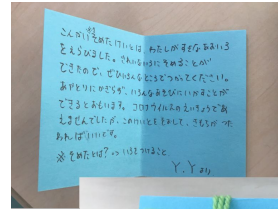 ※
こんかいそめたけいとは、わたしがすきなあおいろ
をえらびました。きれいないろにそめることが
できたので、ぜひいろんなところでつかってください。
あやとりにかぎらず、いろんなあそびにいかすことが
できるとおもいます。コロナウイルスのえいきょうであ
えませんでしたが、このけいとをとおして、きもちがつた
わればいいです。
※そめたとは? いろをつけること
Y.Yより